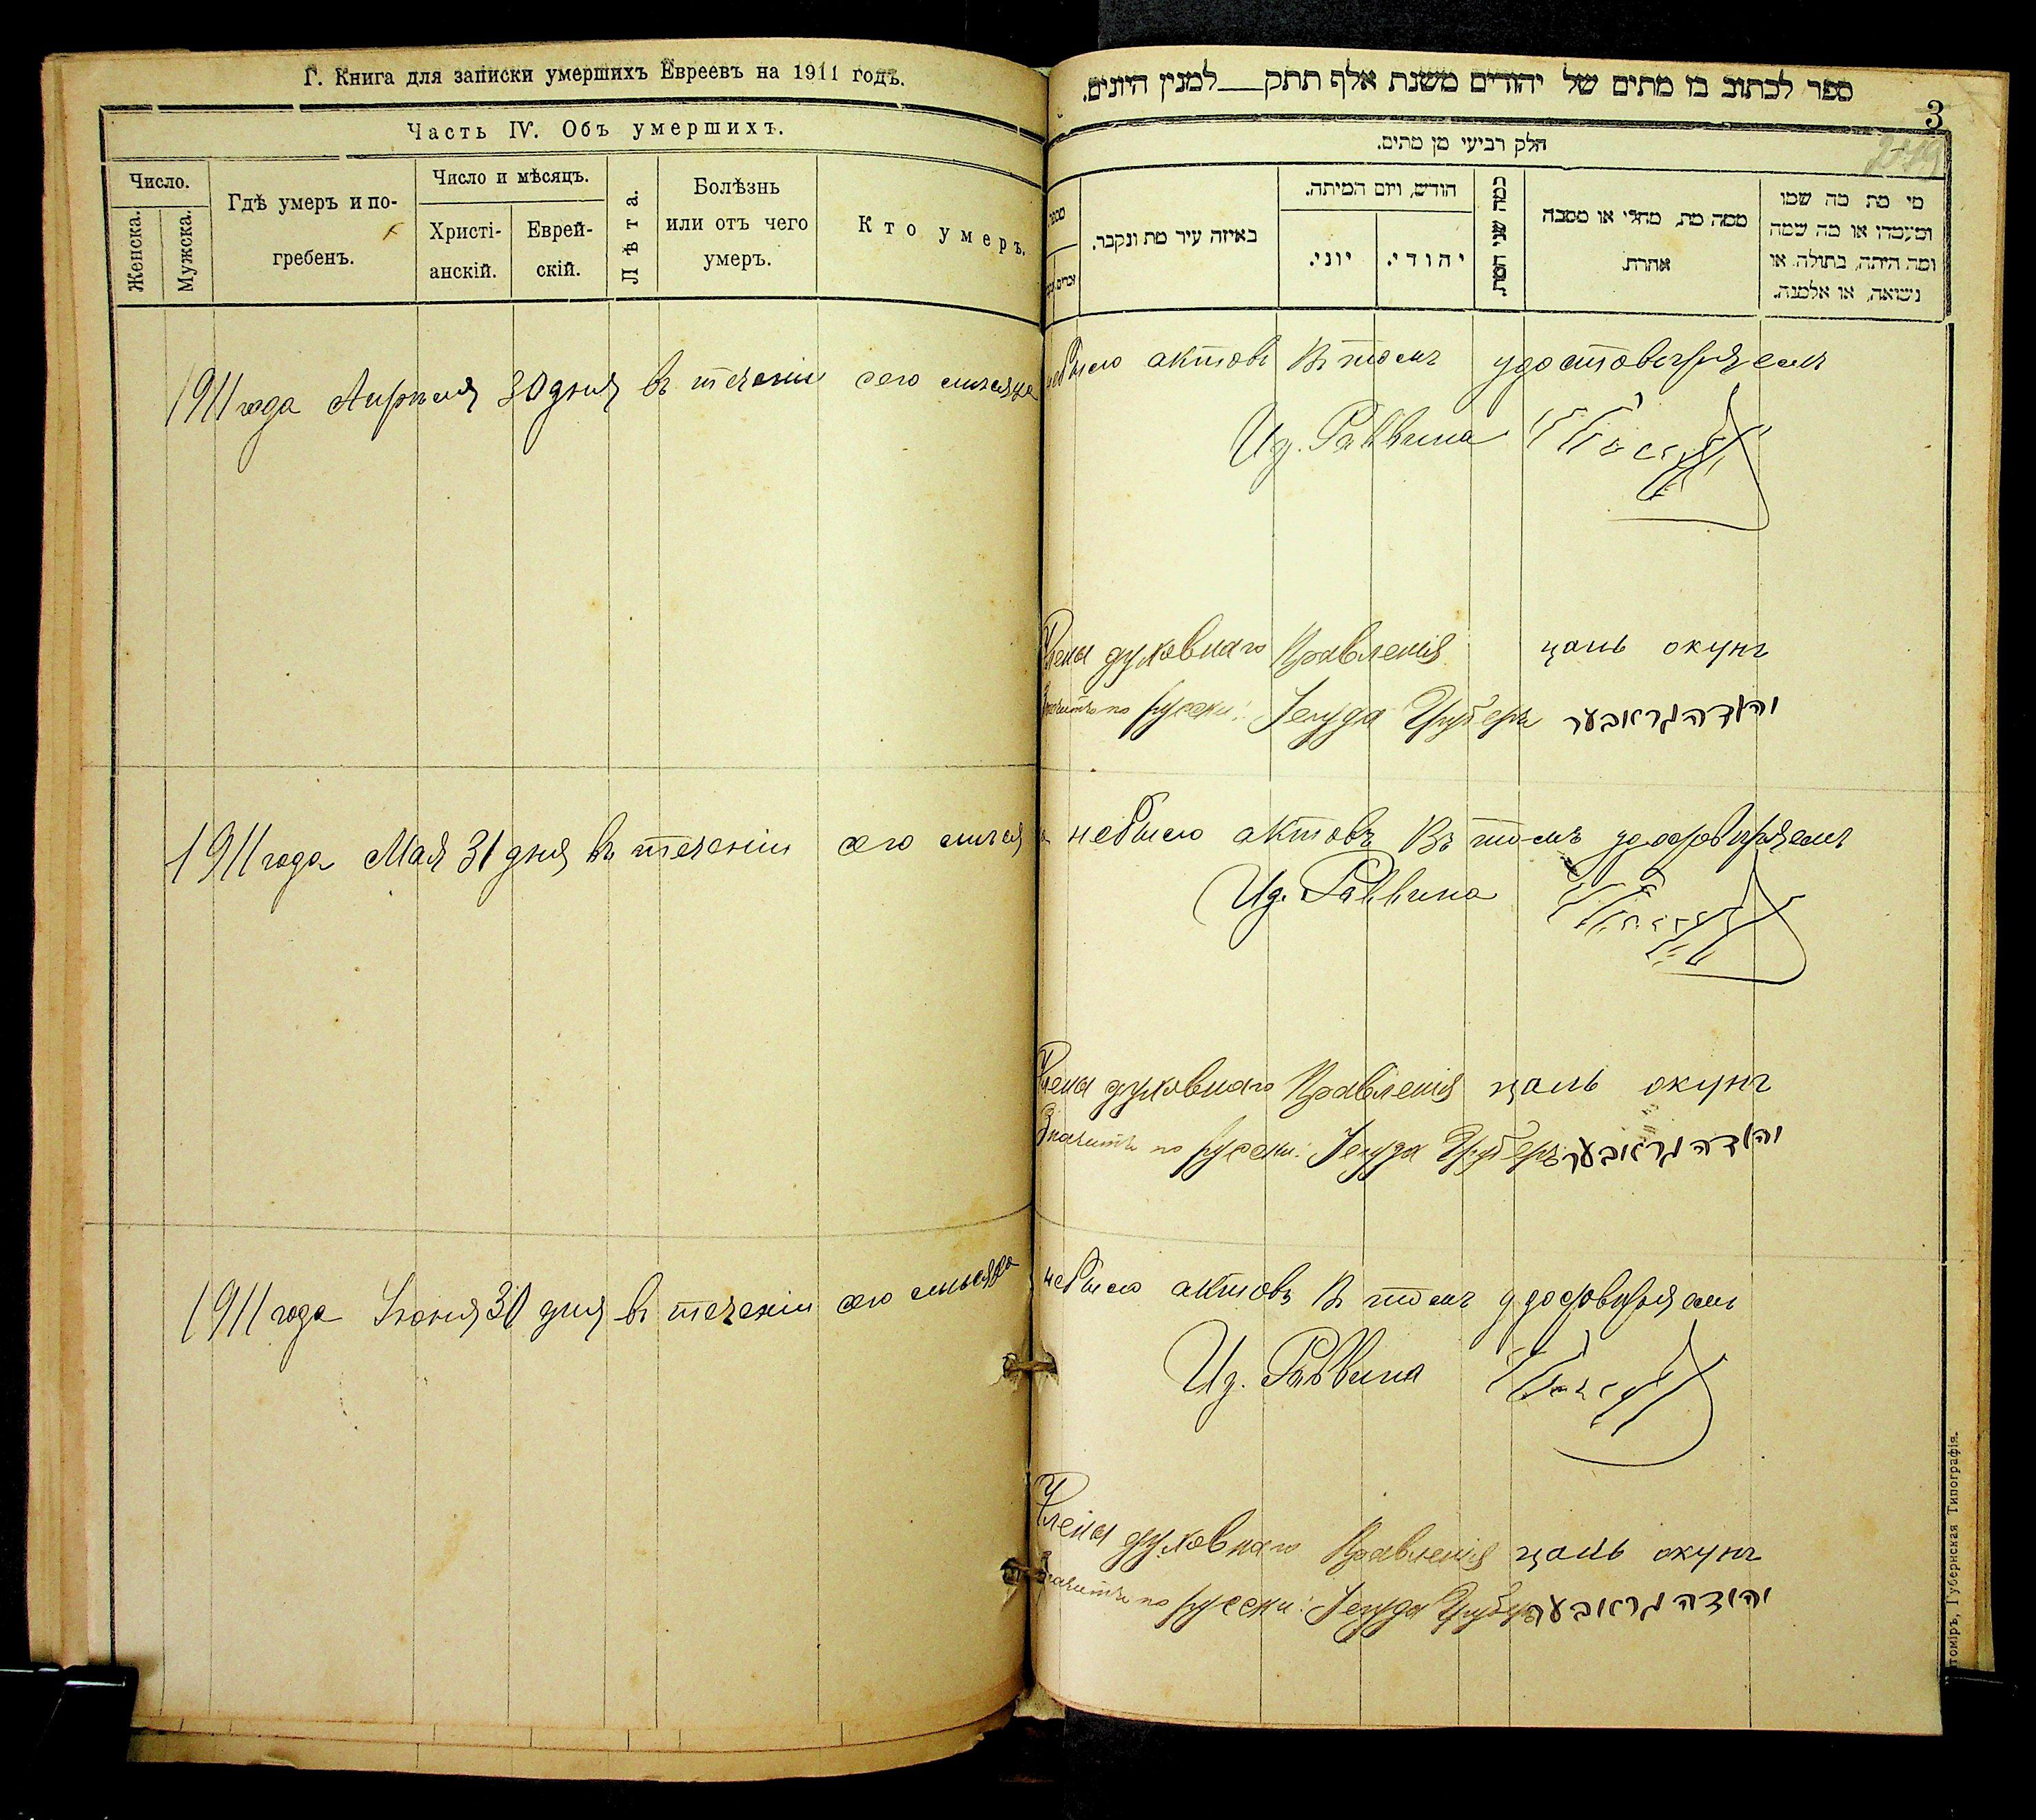 Г. Книга для записки умершихъ Евреевъ на 1911 годъ.
Часть IV. Объ умершихъ.
Число.
Женска.
Мужска.
Гдѣ умеръ и по-
гребенъ.
Число и мѣсяцъ.
Христі-
анскій.
Еврей-
скій.
Лѣта.
Болѣзнь
или отъ чего
умеръ.
Кто умеръ.
1911 года Апрѣля 30 дня въ теченіи сего мѣсяца
1911 года Мая 31 дня въ теченіи сего мѣсяца
1911 года Іюня 30 дня въ теченіи сего мѣсяца
ספר לכתוב בו מתים של יהודים משנת אלף תתק למנין היונים.
3
חלק רביעי מן מתים.
באיזה עיר מת ונקבר.
חודש, ויום המיתה.
יוני.
יהודי.
כמה שני המת.
ממה מת, מחלי או מסבה
אחרת.
מי מת מה שמו
ומעמדו או מה שמה
ומה היתה, בתולה, או
נשואה, או אלמנה.
небыло актовъ Въ томъ удостовѣряемъ
Из. Раввина
Члены духовнаго Правленія цаль окунъ
Значитъ по русски: Іегуда Груберъ יהודה גראובער
небыло актовъ Въ томъ удостовѣряемъ
Из. Раввина
Члены духовнаго Правленія цаль окунъ
Значитъ по русски: Іегуда Груберъ יהודה גראובער
небыло актовъ Въ томъ удостовѣряемъ
Из. Раввина
Члены духовнаго Правленія цаль окунъ
Значитъ по русски: Іегуда Груберъ יהודה גראובער
томіръ, Губернская Типографія.